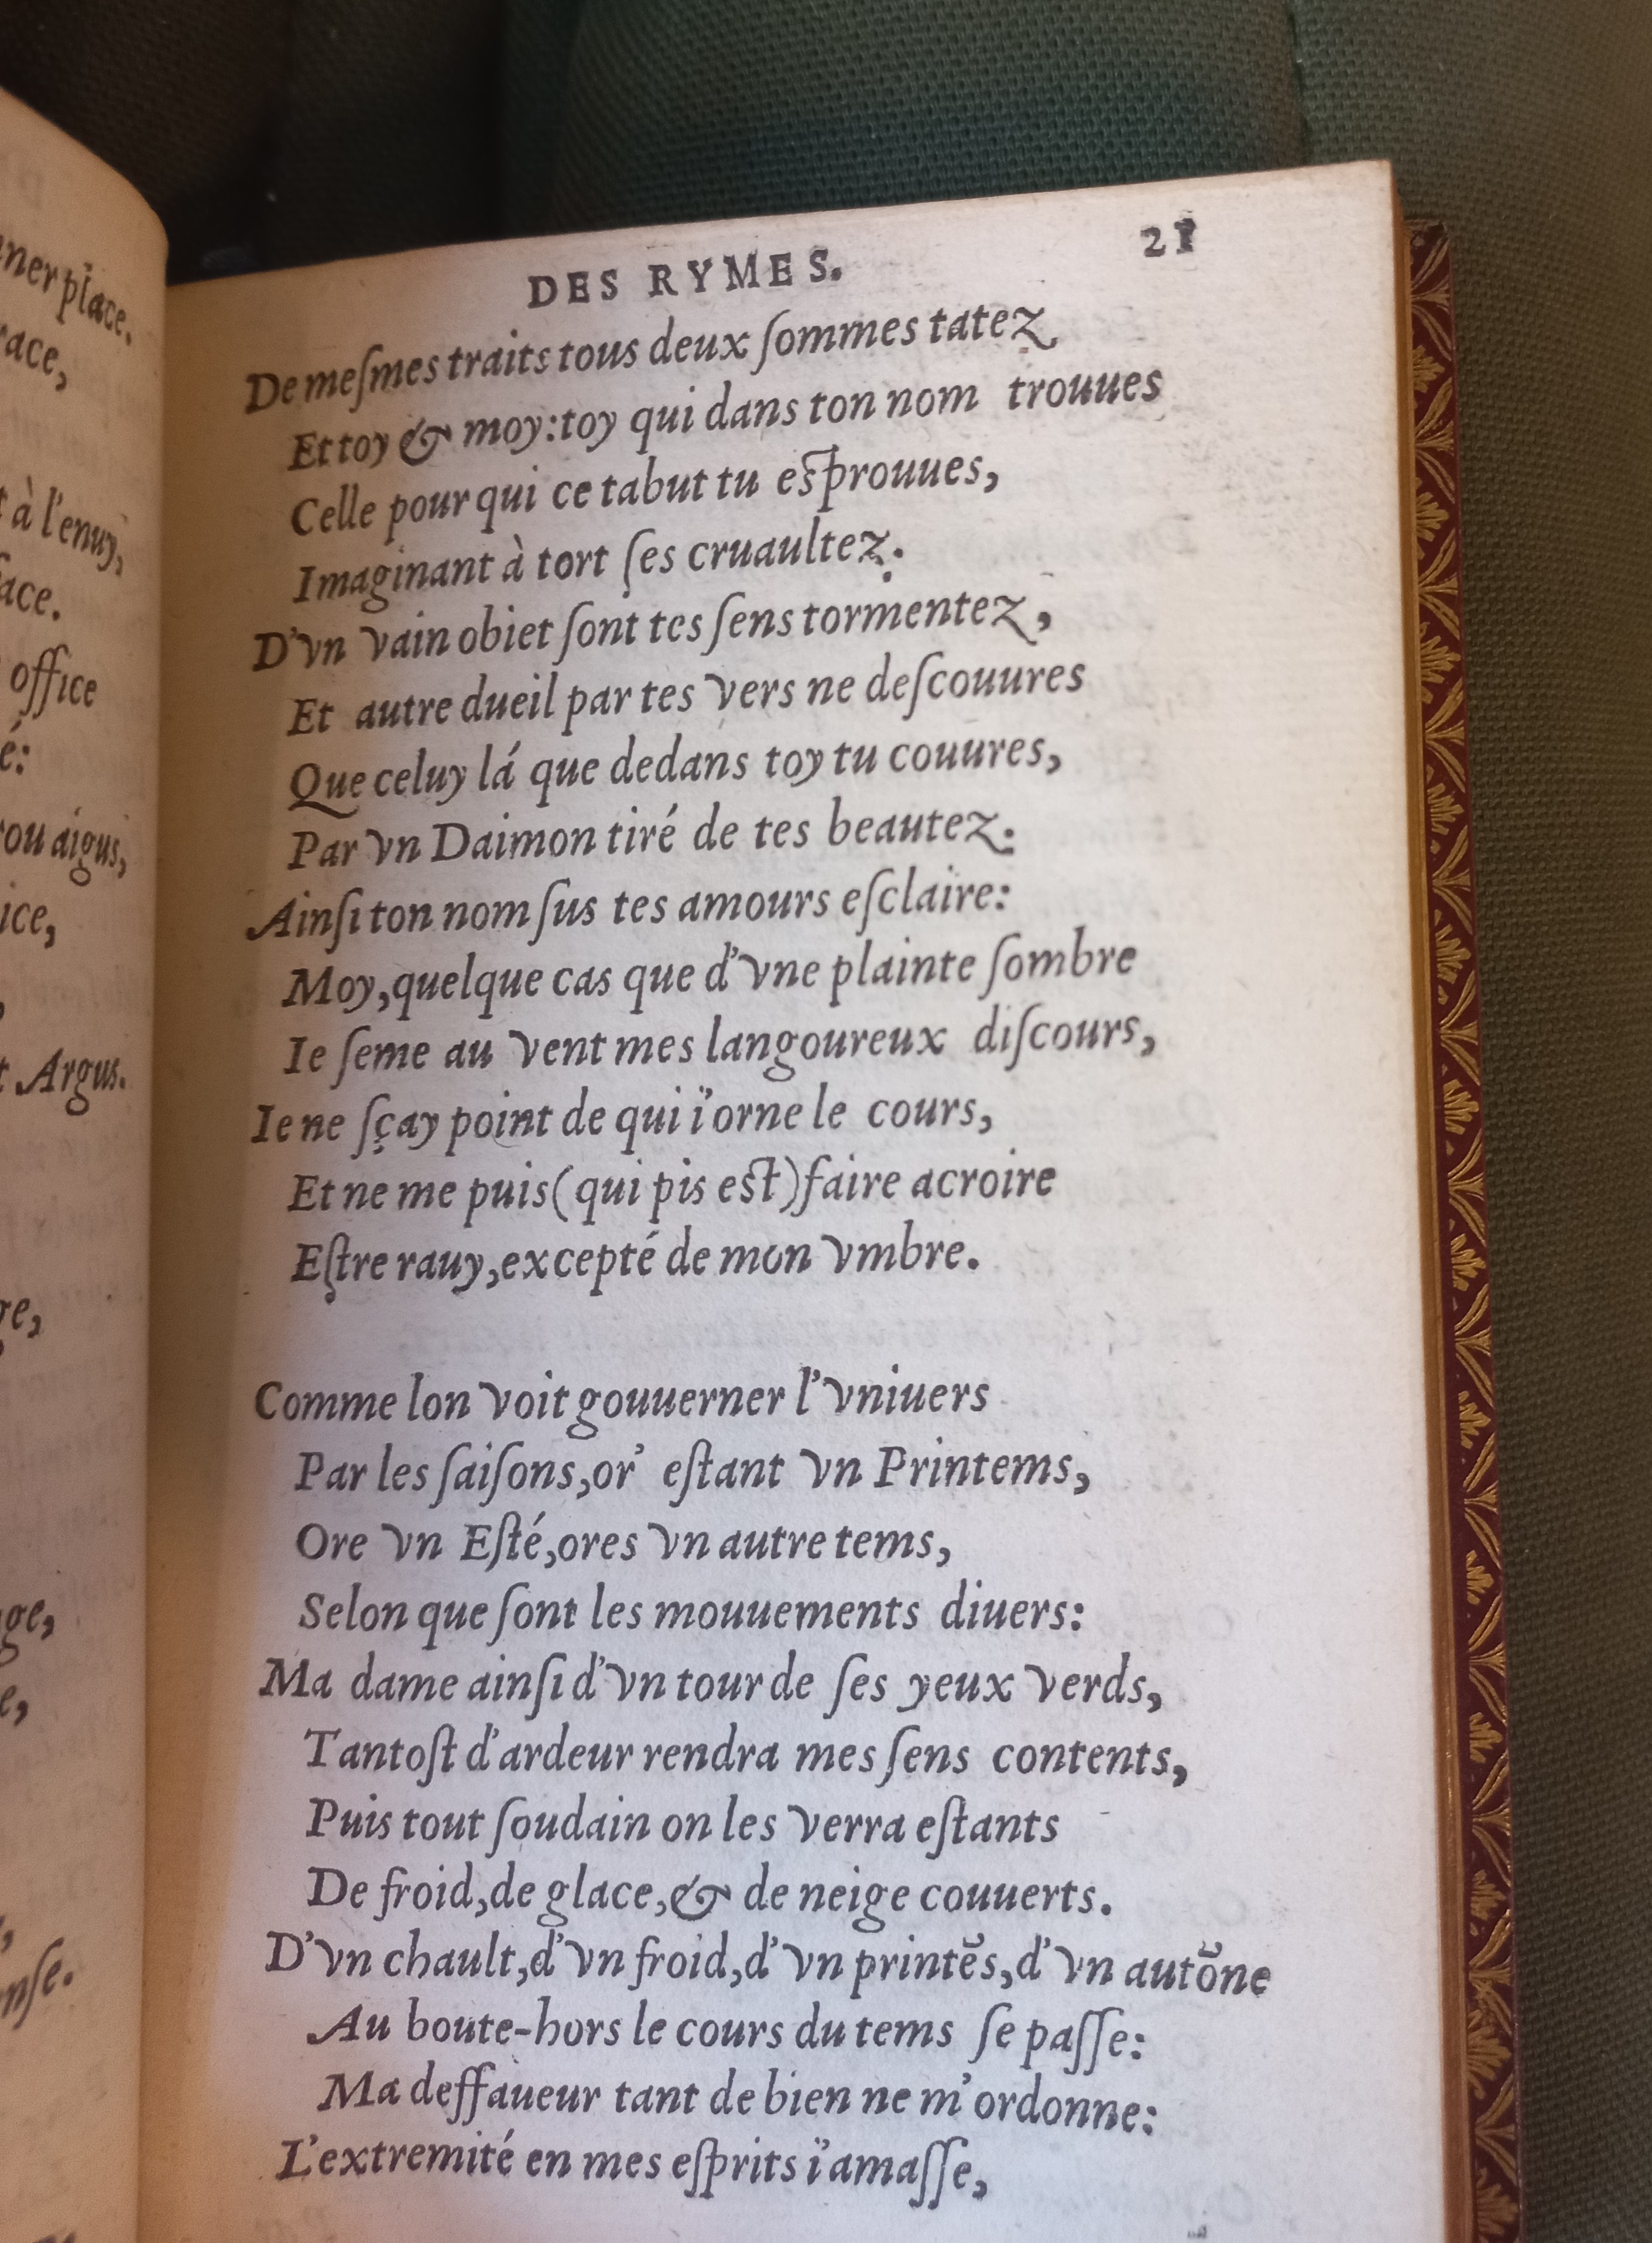 ner place.
race,
à l'enuy,
face.
office
é:
rou aigus,
ice,
Argus.
ge,
e,
nſe.
DES RYMES. 21
De meſmes traits tous deux ſommes tatez
Et toy & moy: toy qui dans ton nom trouues
Celle pour qui ce tabut tu eſprouues,
Imaginant à tort ſes cruaultez.
D'vn vain obiet ſont tes ſens tormentez,
Et autre dueil par tes vers ne deſcouures
Que celuy lá que dedans toy tu couures,
Par vn Daimon tiré de tes beautez.
Ainſi ton nom ſus tes amours eſclaire:
Moy, quelque cas que d'vne plainte ſombre
Ie ſeme au vent mes langoureux diſcours,
Ie ne ſçay point de qui i'orne le cours,
Et ne me puis (qui pis eſt) faire acroire
Eſtre rauy, excepté de mon vmbre.
Comme lon voit gouuerner l'vniuers
Par les ſaiſons, or' eſtant vn Printems,
Ore vn Eſté, ores vn autre tems,
Selon que ſont les mouuements diuers:
Ma dame ainſi d'vn tour de ſes yeux verds,
Tantoſt d'ardeur rendra mes ſens contents,
Puis tout ſoudain on les verra eſtants
De froid, de glace, & de neige couuerts.
D'vn chault, d'vn froid, d'vn printẽs, d'vn autõne
Au boute-hors le cours du tems ſe paſſe:
Ma deffaueur tant de bien ne m'ordonne:
L'extremité en mes eſprits i'amaſſe,